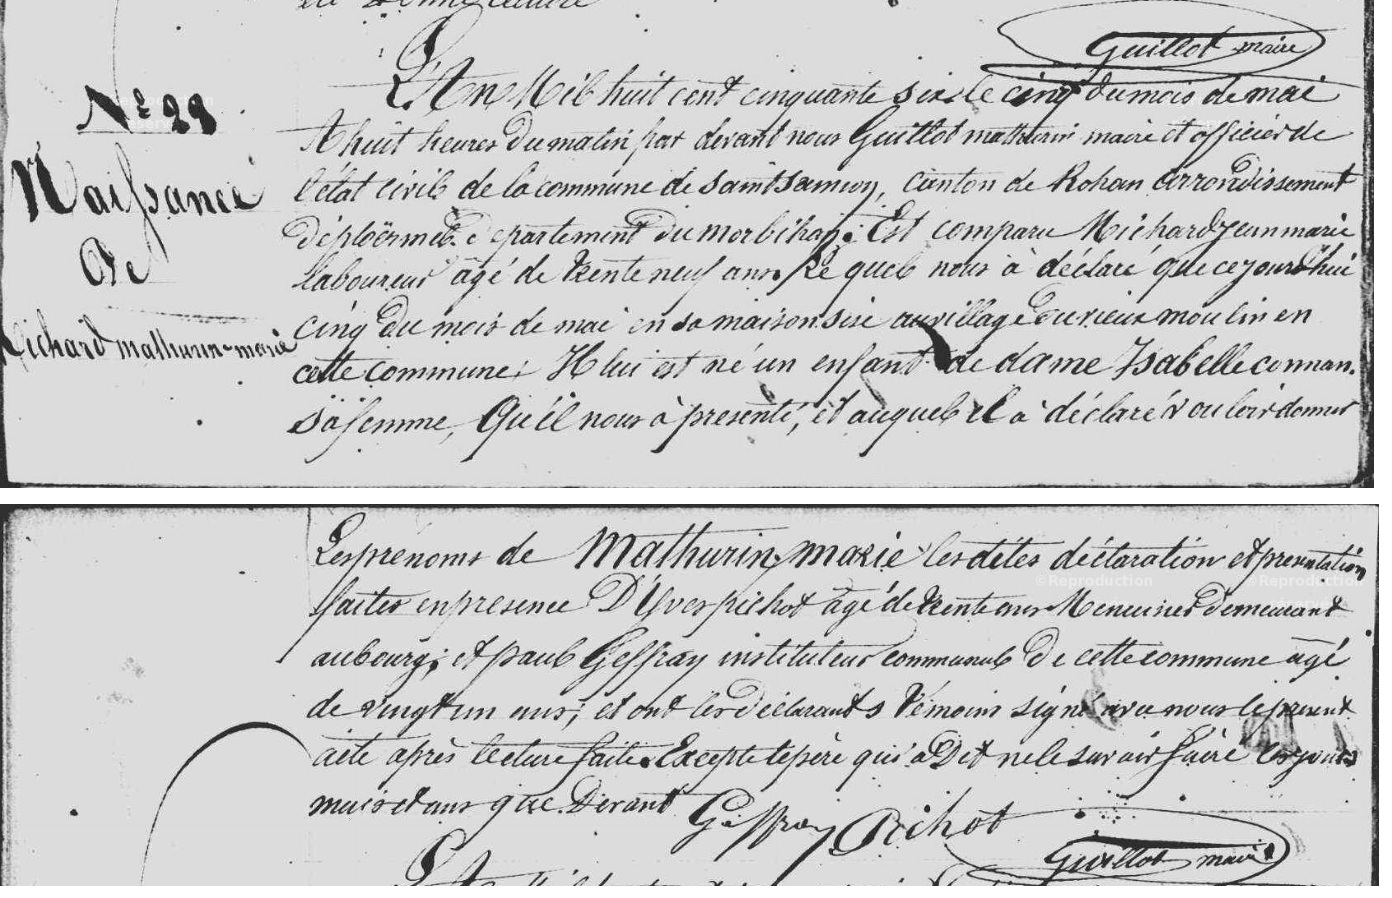 Guillot maire
L'An Mil huit cent cinquante six le cinq du mois de mai
N° 28
A huit heures du matin par devant nous Guillot mathurin maire et officier de
Naissance
l'état civil de la commune de Saint Samson, canton de Rohan arrondissement
de ploërmel departement du morbihan; Est comparu Michard jean marie
De
laboureur âgé de trente neuf ans, Le quel nous à déclaré que ce jourd'hui
cinq du mois de mai en sa maison sise au village du vieux moulin en
Michard mathurin-marie
cette commune; Il lui est né un enfant de dame Isabelle connan.
sa femme, Qu'il nous à présenté, et auquel il a déclaré vouloir donner
Les prénoms de Mathurin, marie les dites déclaration et presentation
©Reproduction
©Reproduction
faites en presence D'Yves pichot âgé de trente ans Menuisier demeurant
au bourg; et paul Geffray instituteur communal De cette commune âgé
de vingt un ans; et ont les déclarants témoins signé avec nous le présent
acte après lecture faite. Excepté le père qui a Dit ne le savoir faire les jours
mois et ans que Devant
Geffray
Pichot
Guillot maire